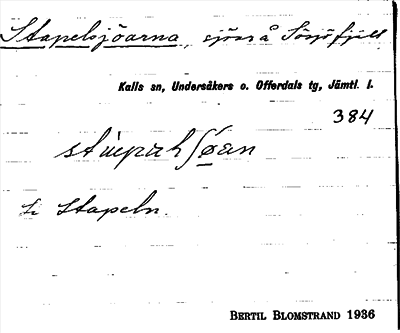 Stapelsjöarna, sjöar å Sösjöfjäll
Kalls sn, Undersåkers o. Offerdals tg, Jämtl. l.
384
Stapeln.
BERTIL BLOMSTRAND 1936